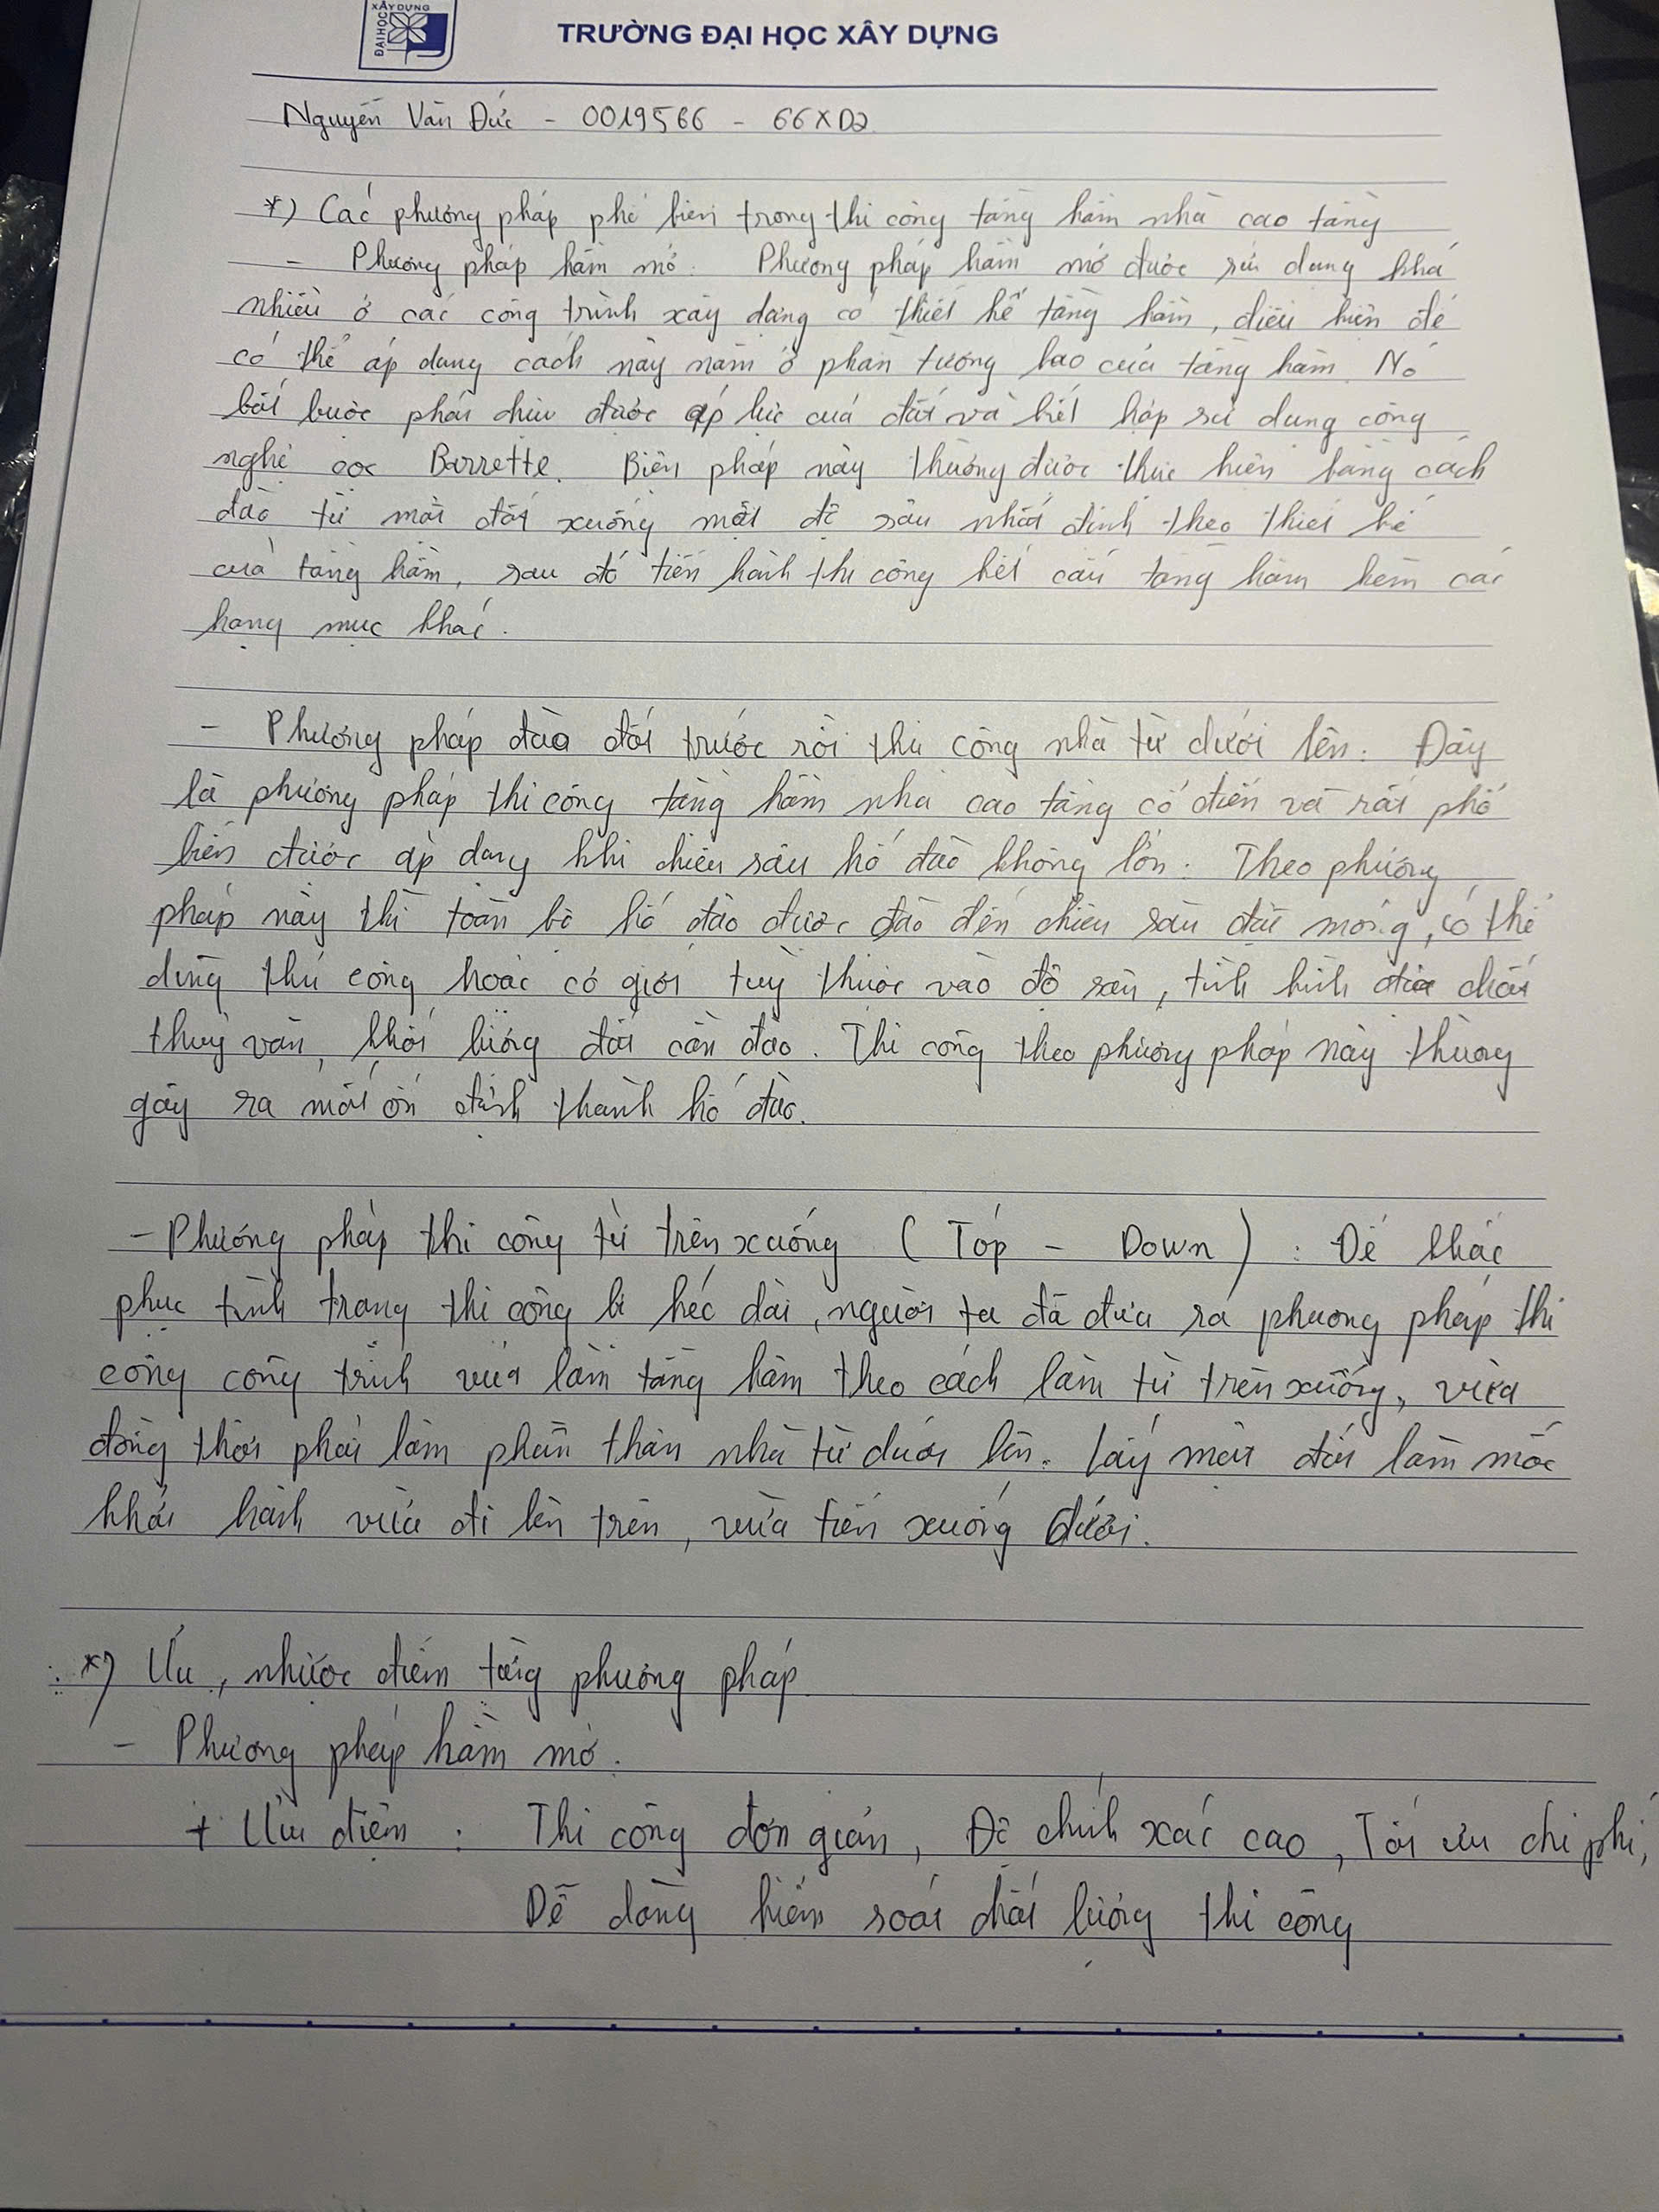 XÂY DỰNG
ĐẠI HỌC
TRƯỜNG ĐẠI HỌC XÂY DỰNG
Nguyễn Văn Đức - 0019566 - 66XD2
*) Các phương pháp phổ biến trong thi công tầng hầm nhà cao tầng
- Phương pháp hầm mở. Phương pháp hầm mở được sử dụng khá
nhiều ở các công trình xây dựng có thiết kế tầng hầm, điều kiện để
có thể áp dụng cách này nằm ở phần tường bao của tầng hầm. Nó
bắt buộc phải chịu được áp lực của đất và kết hợp sử dụng công
nghệ cọc Barrette. Biện pháp này thường được thực hiện bằng cách
đào từ mặt đất xuống một độ sâu nhất định theo thiết kế
của tầng hầm, sau đó tiến hành thi công kết cấu tầng hầm kèm các
hạng mục khác.
- Phương pháp đào đất trước rồi thi công nhà từ dưới lên: Đây
là phương pháp thi công tầng hầm nhà cao tầng cổ điển và rất phổ
biến được áp dụng khi chiều sâu hố đào không lớn. Theo phương
pháp này thì toàn bộ hố đào được đào đến chiều sâu đặt móng, có thể
dùng thủ công hoặc cơ giới tuỳ thuộc vào độ sâu, tình hình địa chất
thuỷ văn, khối lượng đất cần đào. Thi công theo phương pháp này thường
gây ra mất ổn định thành hố đào.
- Phương pháp thi công từ trên xuống (Tóp - Down) : Để khắc
phục tình trạng thi công bị kéo dài, người ta đã đưa ra phương pháp thi
công công trình vừa làm tầng hầm theo cách làm từ trên xuống, vừa
đồng thời phải làm phần thân nhà từ dưới lên. Lấy mặt đất làm mốc
khởi hành vừa đi lên trên, vừa tiến xuống dưới.
*) Ưu, nhược điểm từng phương pháp
- Phương pháp hầm mở.
+ Ưu điểm : Thi công đơn giản, Độ chính xác cao, Tối ưu chi phí,
Dễ dàng kiểm soát chất lượng thi công